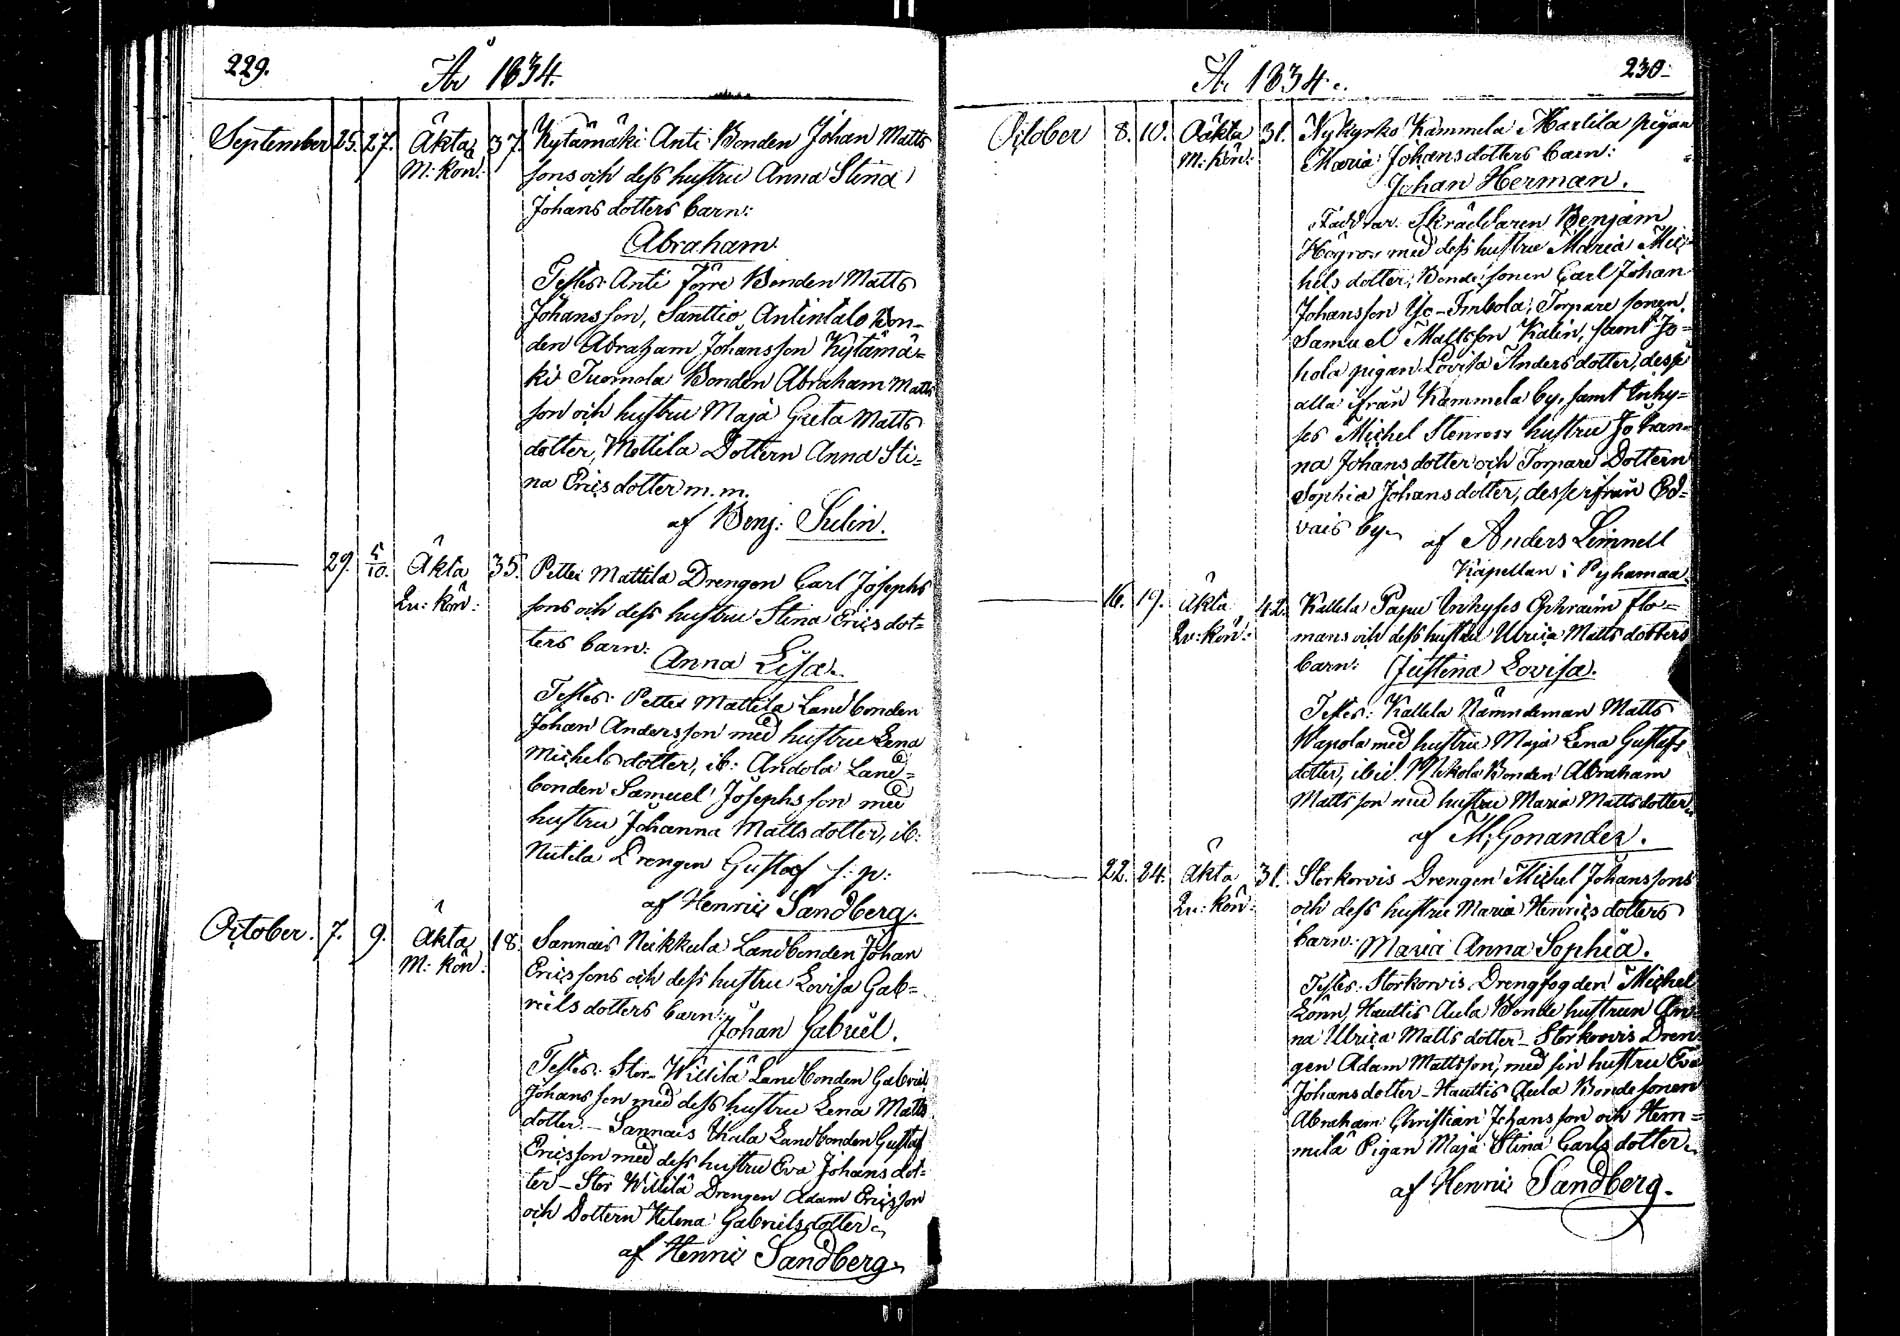 229.
År 1834.
September 25. 27. Äkta 37. Kytämäki Anti Bonden Johan Matts
M: kön: sons och dess hustru Anna Stina
Johans dotters barn:
Abraham.
Testes: Anti förre Bonden Matts
Johansson, Santtio Antintalo Bon=
den Abraham Johansson Kytämä=
ki Tuomola Bonden Abraham Matts
son och hustru Maja Greta Matts
dotter, Mottila Dottern Anna Sti=
na Ericsdotter m.m.
af Benj: Sulin.
29. 5/10. Äkta 35. Pettei Mattila Drengen Carl Josephs
Qu: kön: sons och dess hustru Stina Erics dot=
ters barn:
Anna Lisa.
Testes: Pettei Mattila Landbonden
Johan Andersson med hustru Lena
Michelsdotter, ib: Andola Land=
bonden Samuel Josephsson med
hustru Johanna Matts dotter, ib:
Drengen Gustaf s: p:
af Henric Sandberg.
October. 7. 9. Äkta 18. Sannais Neikkula Landbonden Johan
M: kön: Ericssons och dess hustru Lovisa Gab=
riels dotters barn:
Johan Gabriel.
Testes: Stor-Willilä Landbonden Gabriel
Johansson med dess hustru Lena Matts
dotter. – Sannais Uhala Landbonden Gustaf
Ericsson med dess hustru Eva Johans dot=
ter – Stor Willilä Drengen Adam Ericsson
och Dottern Helena Gabrielsdotter
af Henric Sandberg.
År 1834.
230.
October 8. 10. Oäkta 31. Nykyrko Kammela Martila pigan
M: kön: Maria Johansdotters barn:
Johan Herman.
Faddrar: Skräddaren Benjam
Högros med dess hustru Maria Mic=
hels dotter, Bondesonen Carl Johan
Johansson Yo-Imbola, Torpare sonen
Samuel Mattsson Kalin, samt Jo=
hola pigan Lovisa Andersdotter, desse
alla ifrån Kammela by, samt Inhy=
ses Michel Stenross hustru Johan=
na Johansdotter och Torpare Dottern
Sophia Johansdotter, desse ifrån Ed=
vais by.
af Anders Limnell
Kapellan i Pyhämaa.
16. 19. Äkta 42. Kallela Papu Inhyses Ephraim Flo=
Qu: kön: mans och dess hustru Ulrica Mattsdotters
barn: Justina Lovisa.
Testes: Kallela Nämndeman Matts
Wapola med hustru Maja Lena Gustafs
dotter, ibid. Mikola Bonden Abraham
Mattsson med hustru Maria Mattsdotter
af M. Gonander.
22. 24. Äkta 31. Storkorvis Drengen Michel Johanssons
Qu: kön: och dess hustru Maria Henricsdotters
barn: Maria Anna Sophia.
Testes: Storkorvis Drengfogden Michel
Lönn, Hauttis Aula Bonde hustrun An
na Ulrica Mattsdotter – Storkorvis Dren
gen Adam Mattsson, med sin hustru Eva
Johansdotter – Hauttis Aula Bondesonen
Abraham Christian Johansson och Hem=
milä Pigan Maja Stina Carlsdotter
af Henric Sandberg.